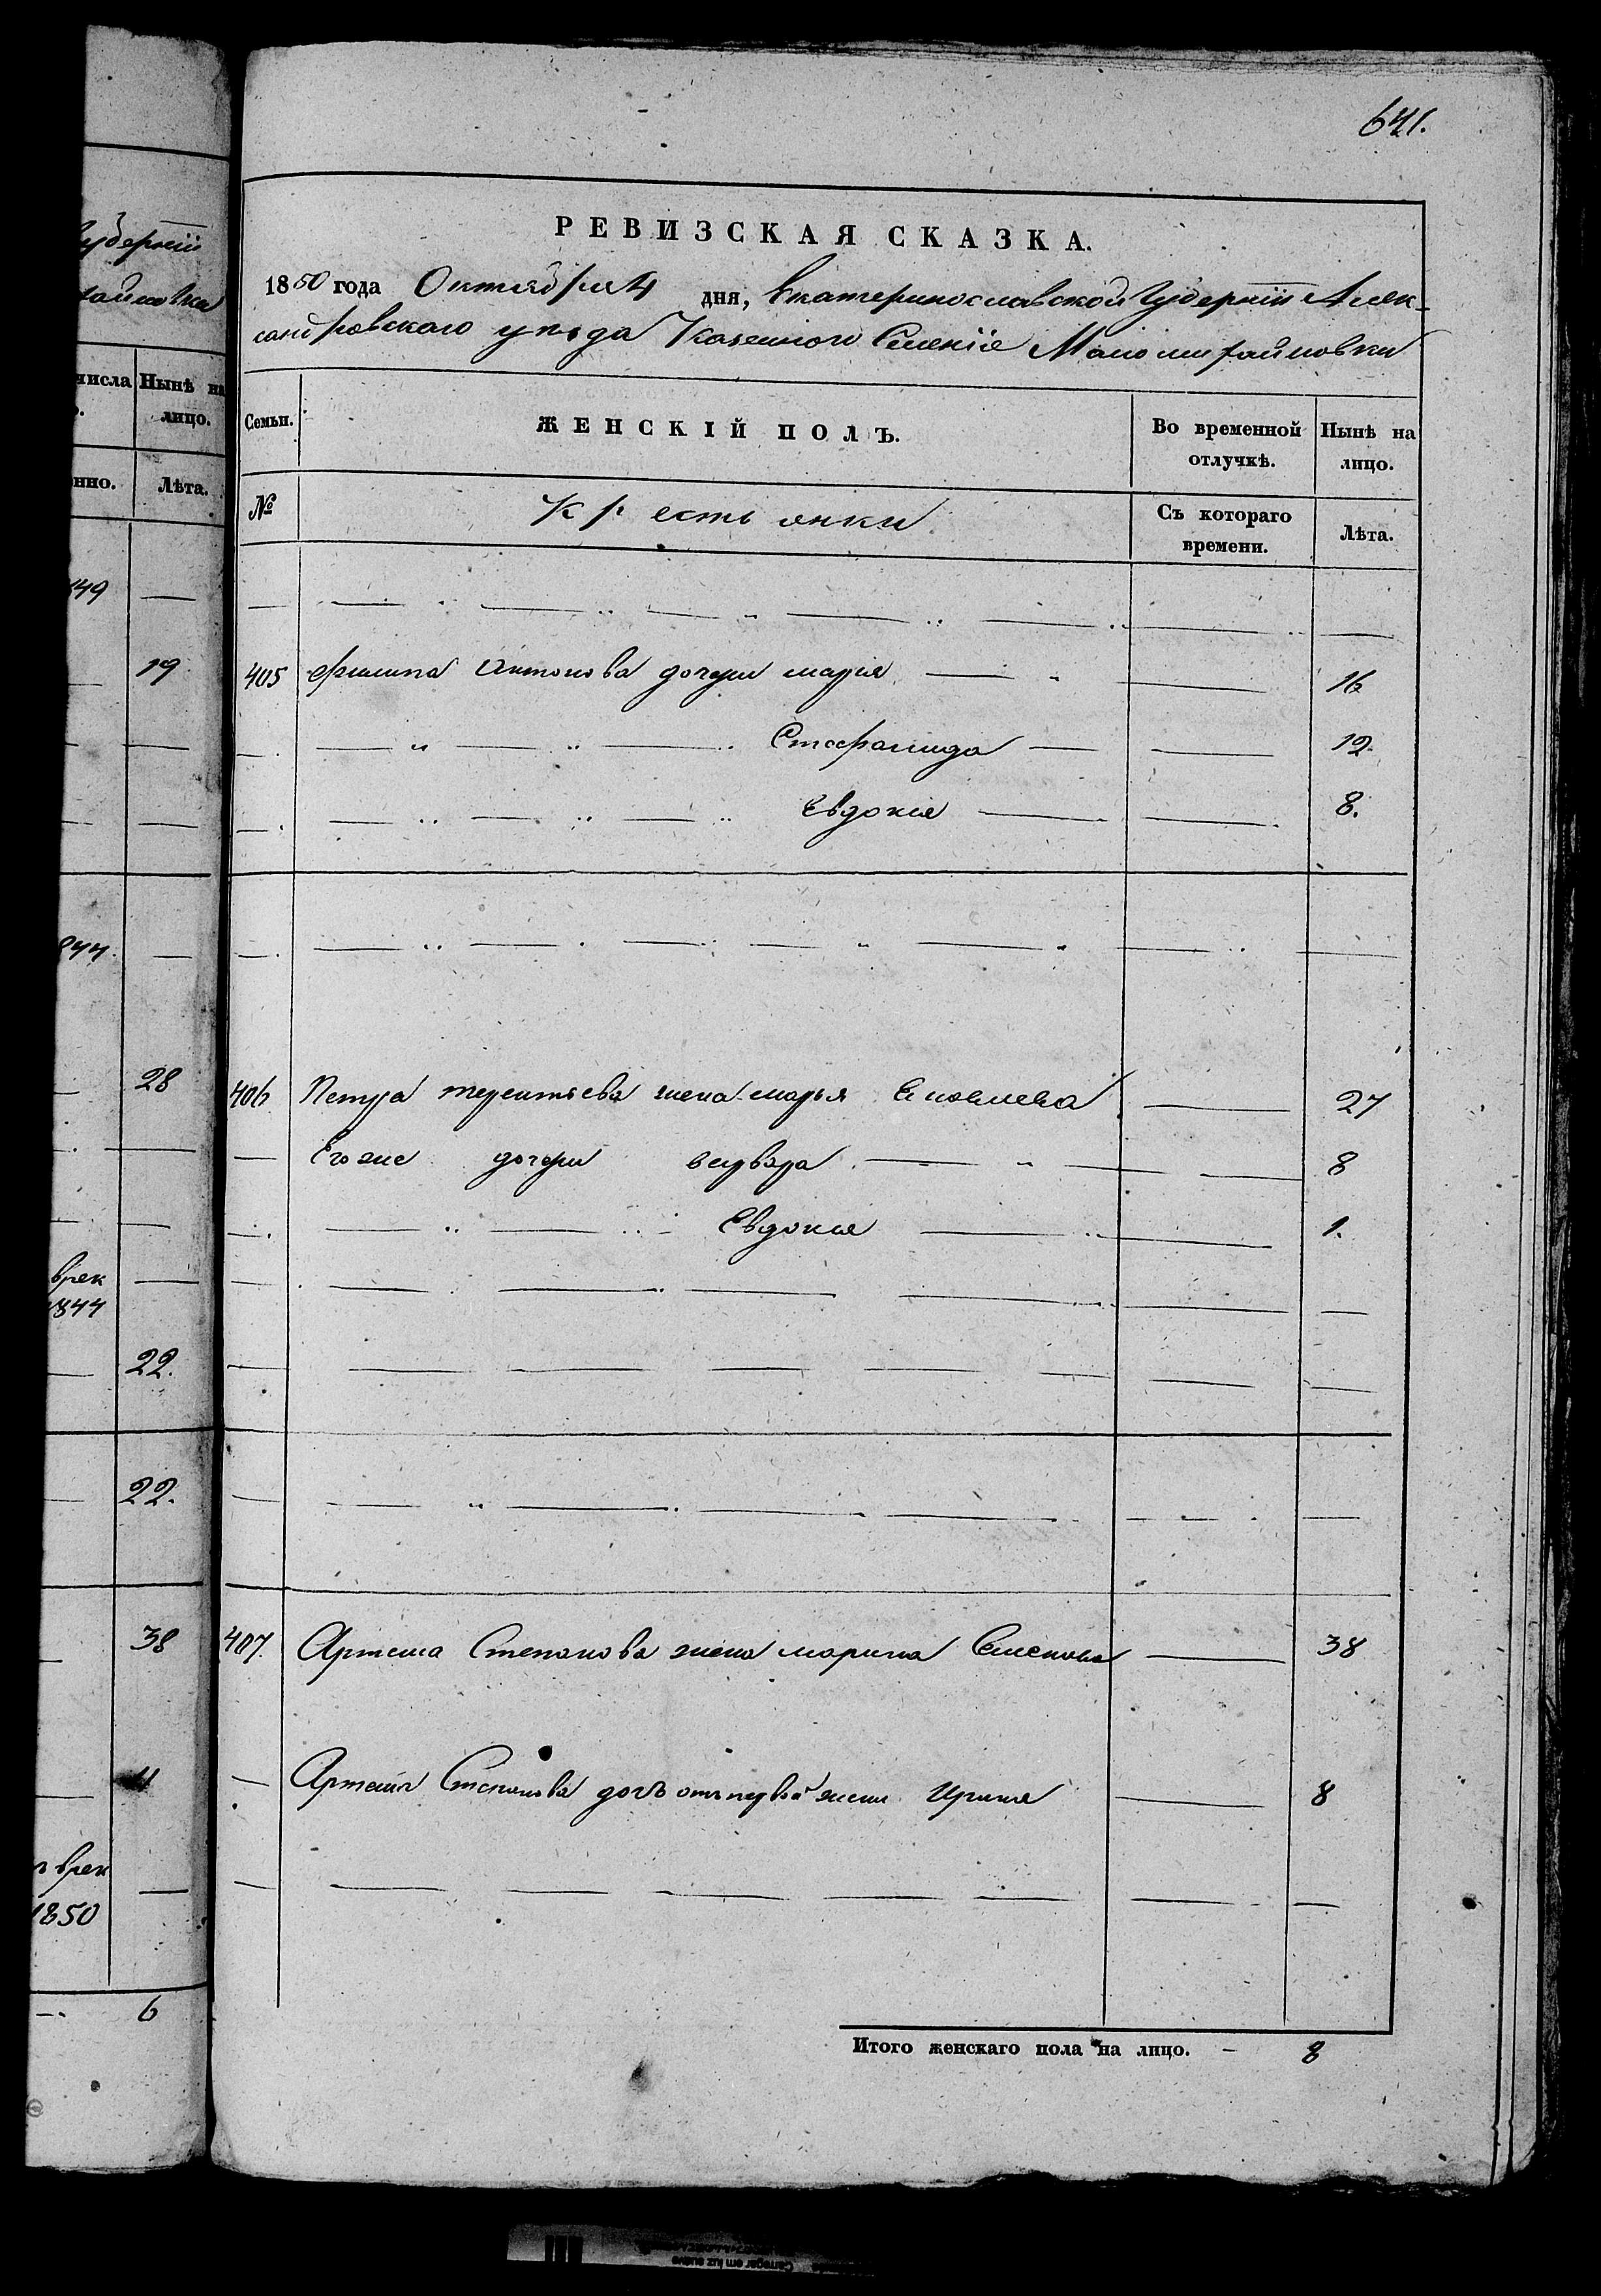 641.
РЕВИЗСКАЯ СКАЗКА.
1850 года Октября 4 дня, Екатеринославской Губернии Алек-
сандровского уезда Казенного Селения Маломихайловки
Семьи. ЖЕНСКІЙ ПОЛЪ. Во временной отлучкѣ. Нынѣ на лицо.
№ Крестьянки Съ котораго времени. Лѣта.
405 Филипа Антонова дочери марія 16
Стефанида 12.
Евдокия 8.
406 Петра терентьева жена марья Яковлева 27
Его же дочери варвара 8
Евдокия 1.
407. Артема Степанова жена марина Семенова 38
Артема Степанова дочь отъ первой жены Ирина 8
Итого женскаго пола на лицо. — 8
Губернии
числа Нынѣ на лицо.
Лѣта.
19
28
1844
22.
22.
38
11
1850
6